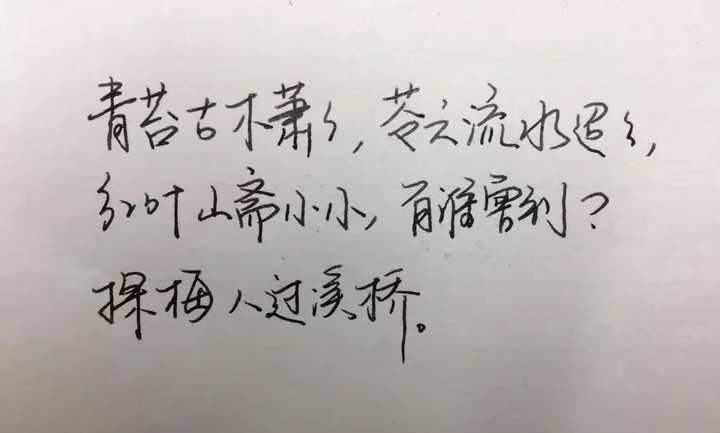 青苔古木萧萧,苍云流水迢迢,
红叶山斋小小,有谁曾到?
探梅人过溪桥。